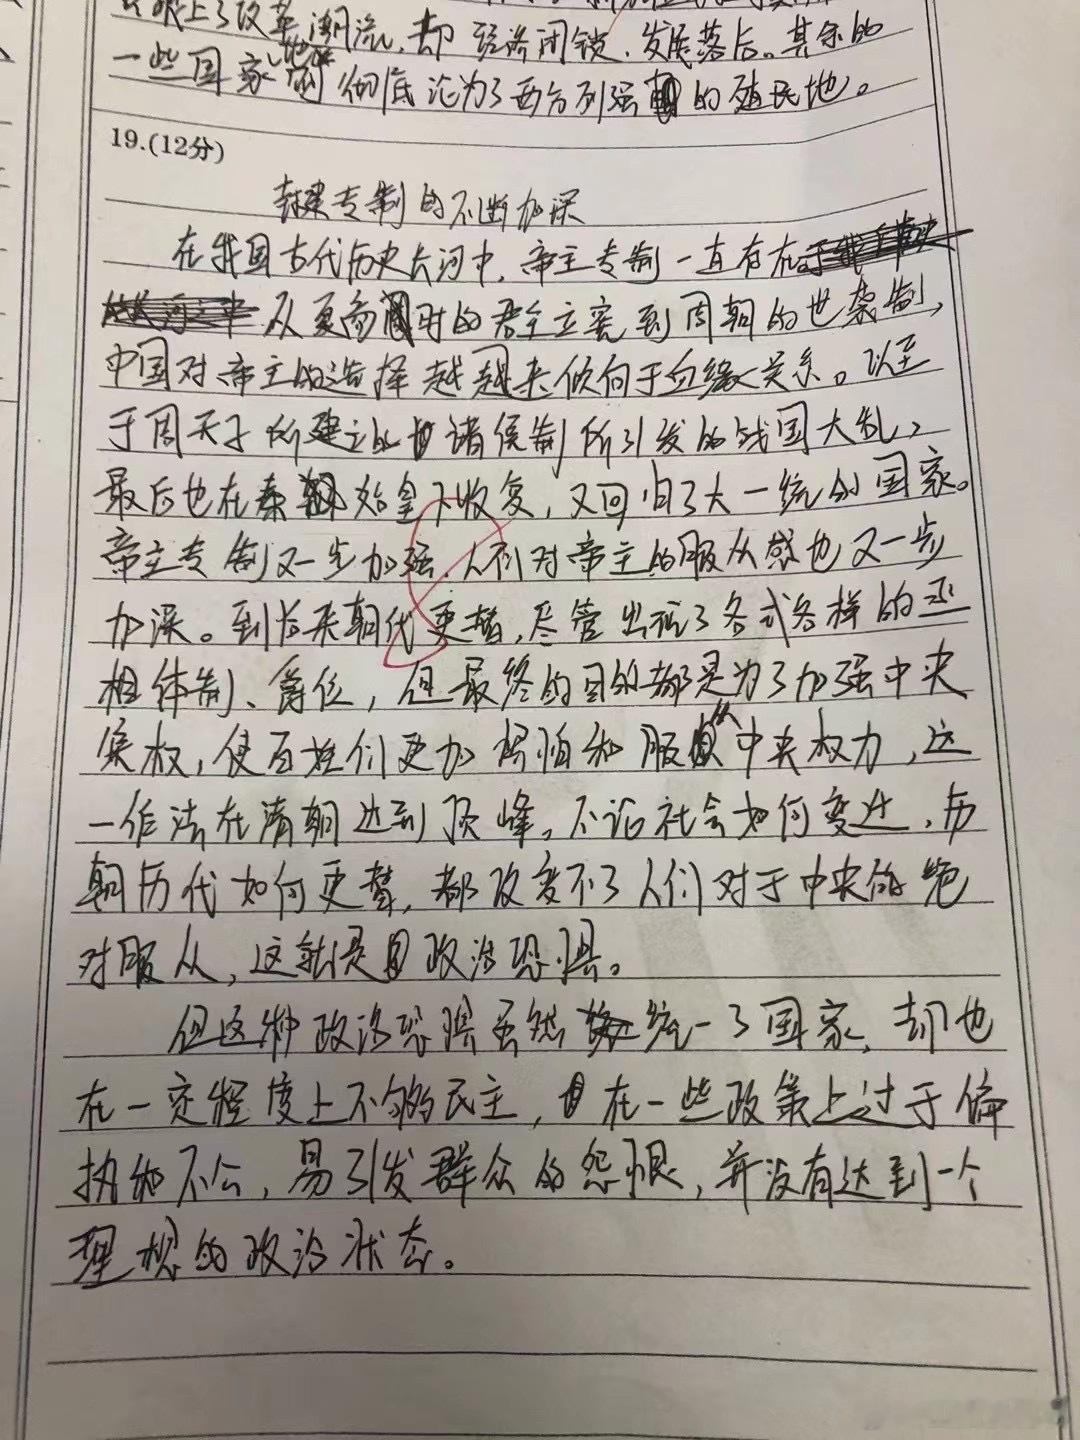 跟上了改革潮流,却经济闭锁、发展落后。其余的
一些国家地区则彻底沦为了西方列强的殖民地。
19.(12分)
封建专制的不断加深
在我国古代历史长河中,帝王专制一直存在
从夏商时的君主立宪到周朝的世袭制,
中国对帝王的选择越来倾向于血缘关系。以至
于周天子所建立的诸侯制所引发的战国大乱,
最后也在秦始皇下收复,又回归了大一统的国家。
帝王专制又一步加强,人们对帝王的服从感也又一步
加深。到后来朝代更替,尽管出现了各式各样的丞
相体制、爵位,但最终的目的都是为了加强中央
集权,使百姓们更加惧怕和服从中央权力,这
一作法在清朝达到顶峰。不论社会如何变迁,历
朝历代如何更替,都改变不了人们对于中央的绝
对服从,这就是政治恐惧。
但这种政治恐惧虽然统一了国家,却也
在一定程度上不够民主,在一些政策上过于偏
执和不公,易引发群众的怨恨,并没有达到一个
理想的政治状态。